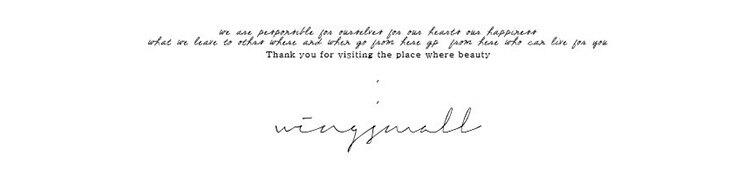 we are responsible for ourselves for our hearts our happiness
what we leave to othrs where and when go from here gp from here who can live for you
Thank you for visiting the place where beauty
wingsmall